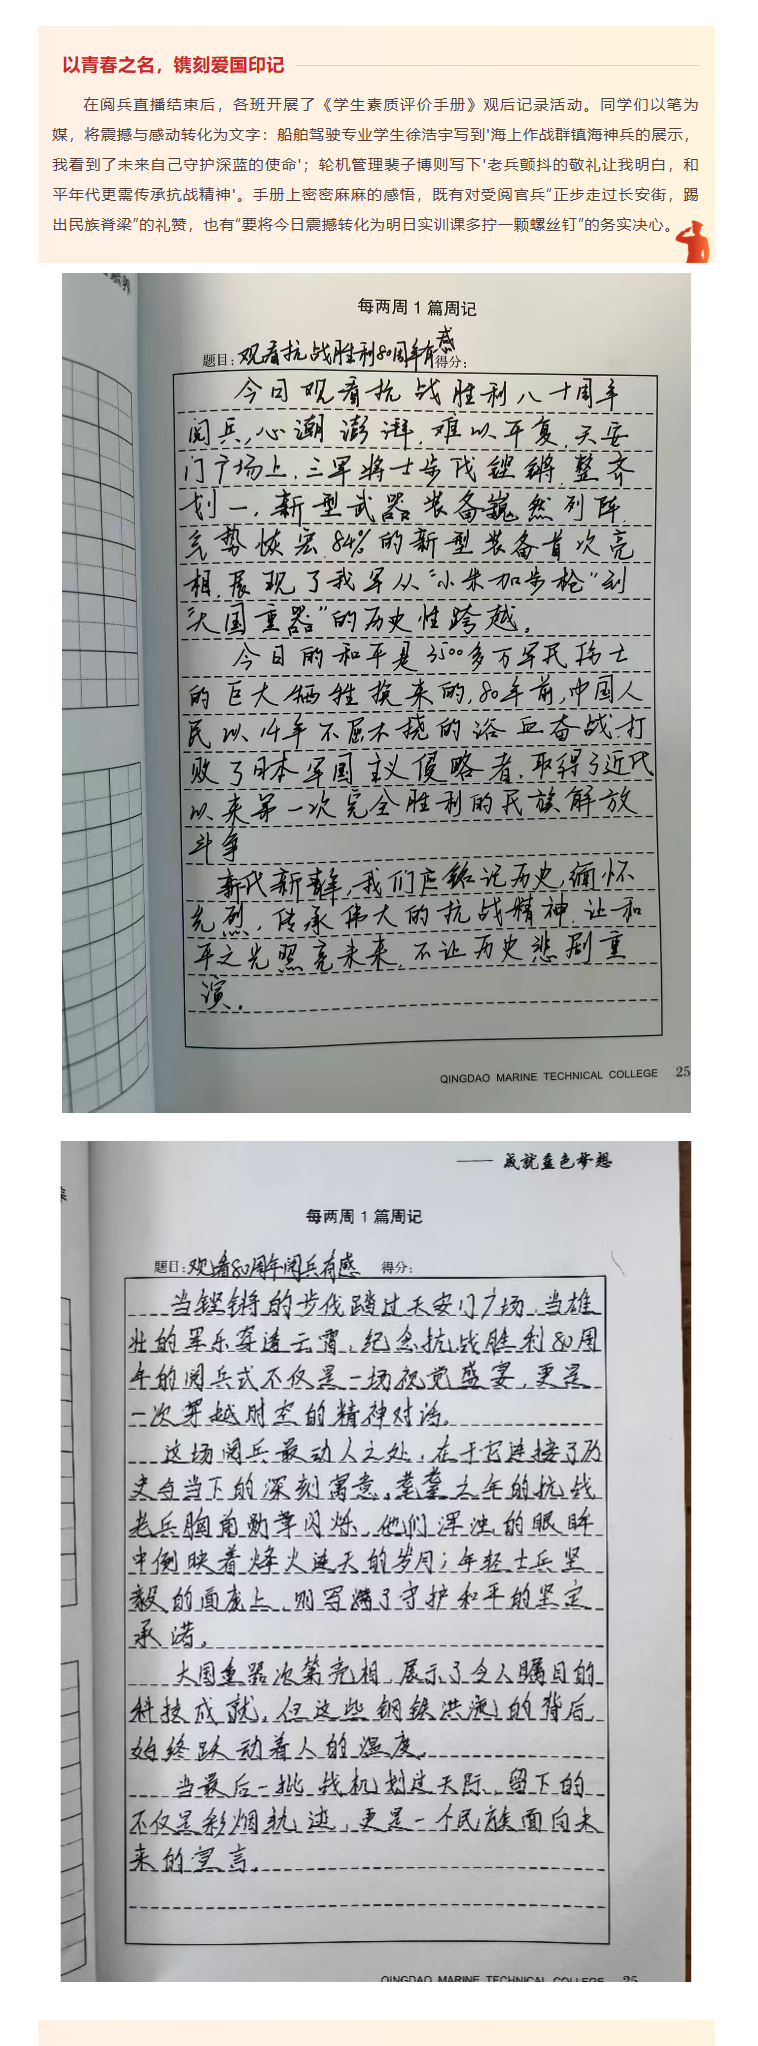 以青春之名，镌刻爱国印记
在阅兵直播结束后，各班开展了《学生素质评价手册》观后记录活动。同学们以笔为
媒，将震撼与感动转化为文字：船舶驾驶专业学生徐浩宇写到'海上作战群镇海神兵的展示，
我看到了未来自己守护深蓝的使命'；轮机管理裴子博则写下'老兵颤抖的敬礼让我明白，和
平年代更需传承抗战精神'。手册上密密麻麻的感悟，既有对受阅官兵“正步走过长安街，踢
出民族脊梁”的礼赞，也有“要将今日震撼转化为明日实训课多拧一颗螺丝钉”的务实决心。
每两周 1 篇周记
题目：观看抗战胜利80周年有感 得分：
今日观看抗战胜利八十周年
阅兵,心潮澎湃,难以平复,天安
门广场上,三军将士步伐铿锵,整齐
划一,新型武器装备巍然列阵,
气势恢宏,84%的新型装备首次亮
相,展现了我军从“小米加步枪”到
“大国重器”的历史性跨越。
今日的和平是3500多万军民伤亡
的巨大牺牲换来的,80年前,中国人
民以14年不屈不挠的浴血奋战,打
败了日本军国主义侵略者,取得了近代
以来第一次完全胜利的民族解放
斗争
新代新青年,我们应铭记历史,缅怀
先烈,传承伟大的抗战精神,让和
平之光照亮未来,不让历史悲剧重
演.
QINGDAO MARINE TECHNICAL COLLEGE 25
—— 成就蓝色梦想
每两周 1 篇周记
题目：观看80周年阅兵有感 得分：
当铿锵的步伐踏过天安门广场,当雄
壮的军乐穿透云霄,纪念抗战胜利80周
年的阅兵式不仅是一场视觉盛宴,更是
一次穿越时空的精神对话。
这场阅兵最动人之处,在于它连接了历
史与当下的深刻寓意,耄耋之年的抗战
老兵胸前勋章闪烁,他们浑浊的眼眸
中倒映着烽火连天的岁月;年轻士兵坚
毅的面庞上,则写满了守护和平的坚定
承诺。
大国重器次第亮相,展示了令人瞩目的
科技成就,但这些钢铁洪流的背后,
始终跃动着人的温度。
当最后一批战机划过天际,留下的
不仅是彩烟轨迹,更是一个民族面向未
来的宣言。
QINGDAO MARINE TECHNICAL COLLEGE 25